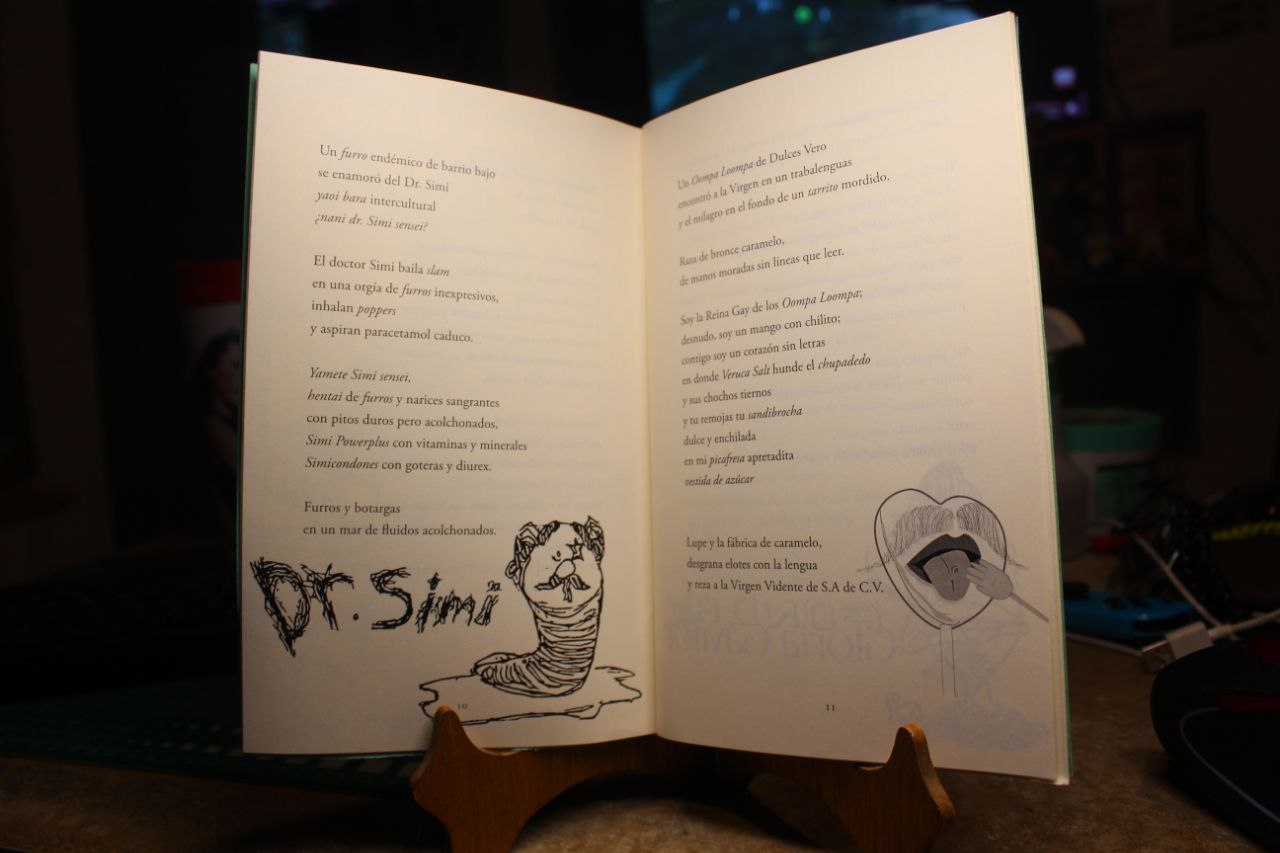 Un furro endémico de barrio bajo
se enamoró del Dr. Simi
yaoi bara intercultural
¿nani dr. Simi sensei?
El doctor Simi baila slam
en una orgía de furros inexpresivos,
inhalan poppers
y aspiran paracetamol caduco.
Yamete Simi sensei,
hentai de furros y narices sangrantes
con pitos duros pero acolchonados,
Simi Powerplus con vitaminas y minerales
Simicondones con goteras y diurex.
Furros y botargas
en un mar de fluidos acolchonados.
Dr. Simi
10
Un Oompa Loompa de Dulces Vero
encontró a la Virgen en un trabalenguas
y el milagro en el fondo de un tarrito mordido.
Raza de bronce caramelo,
de manos moradas sin líneas que leer.
Soy la Reina Gay de los Oompa Loompa;
desnudo, soy un mango con chilito;
contigo soy un corazón sin letras
en donde Veruca Salt hunde el chupadedo
y sus chochos tiernos
y tu remojas tu sandibrocha
dulce y enchilada
en mi picafresa apretadita
vestida de azúcar
Lupe y la fábrica de caramelo,
desgrana elotes con la lengua
y reza a la Virgen Vidente de S.A de C.V.
11